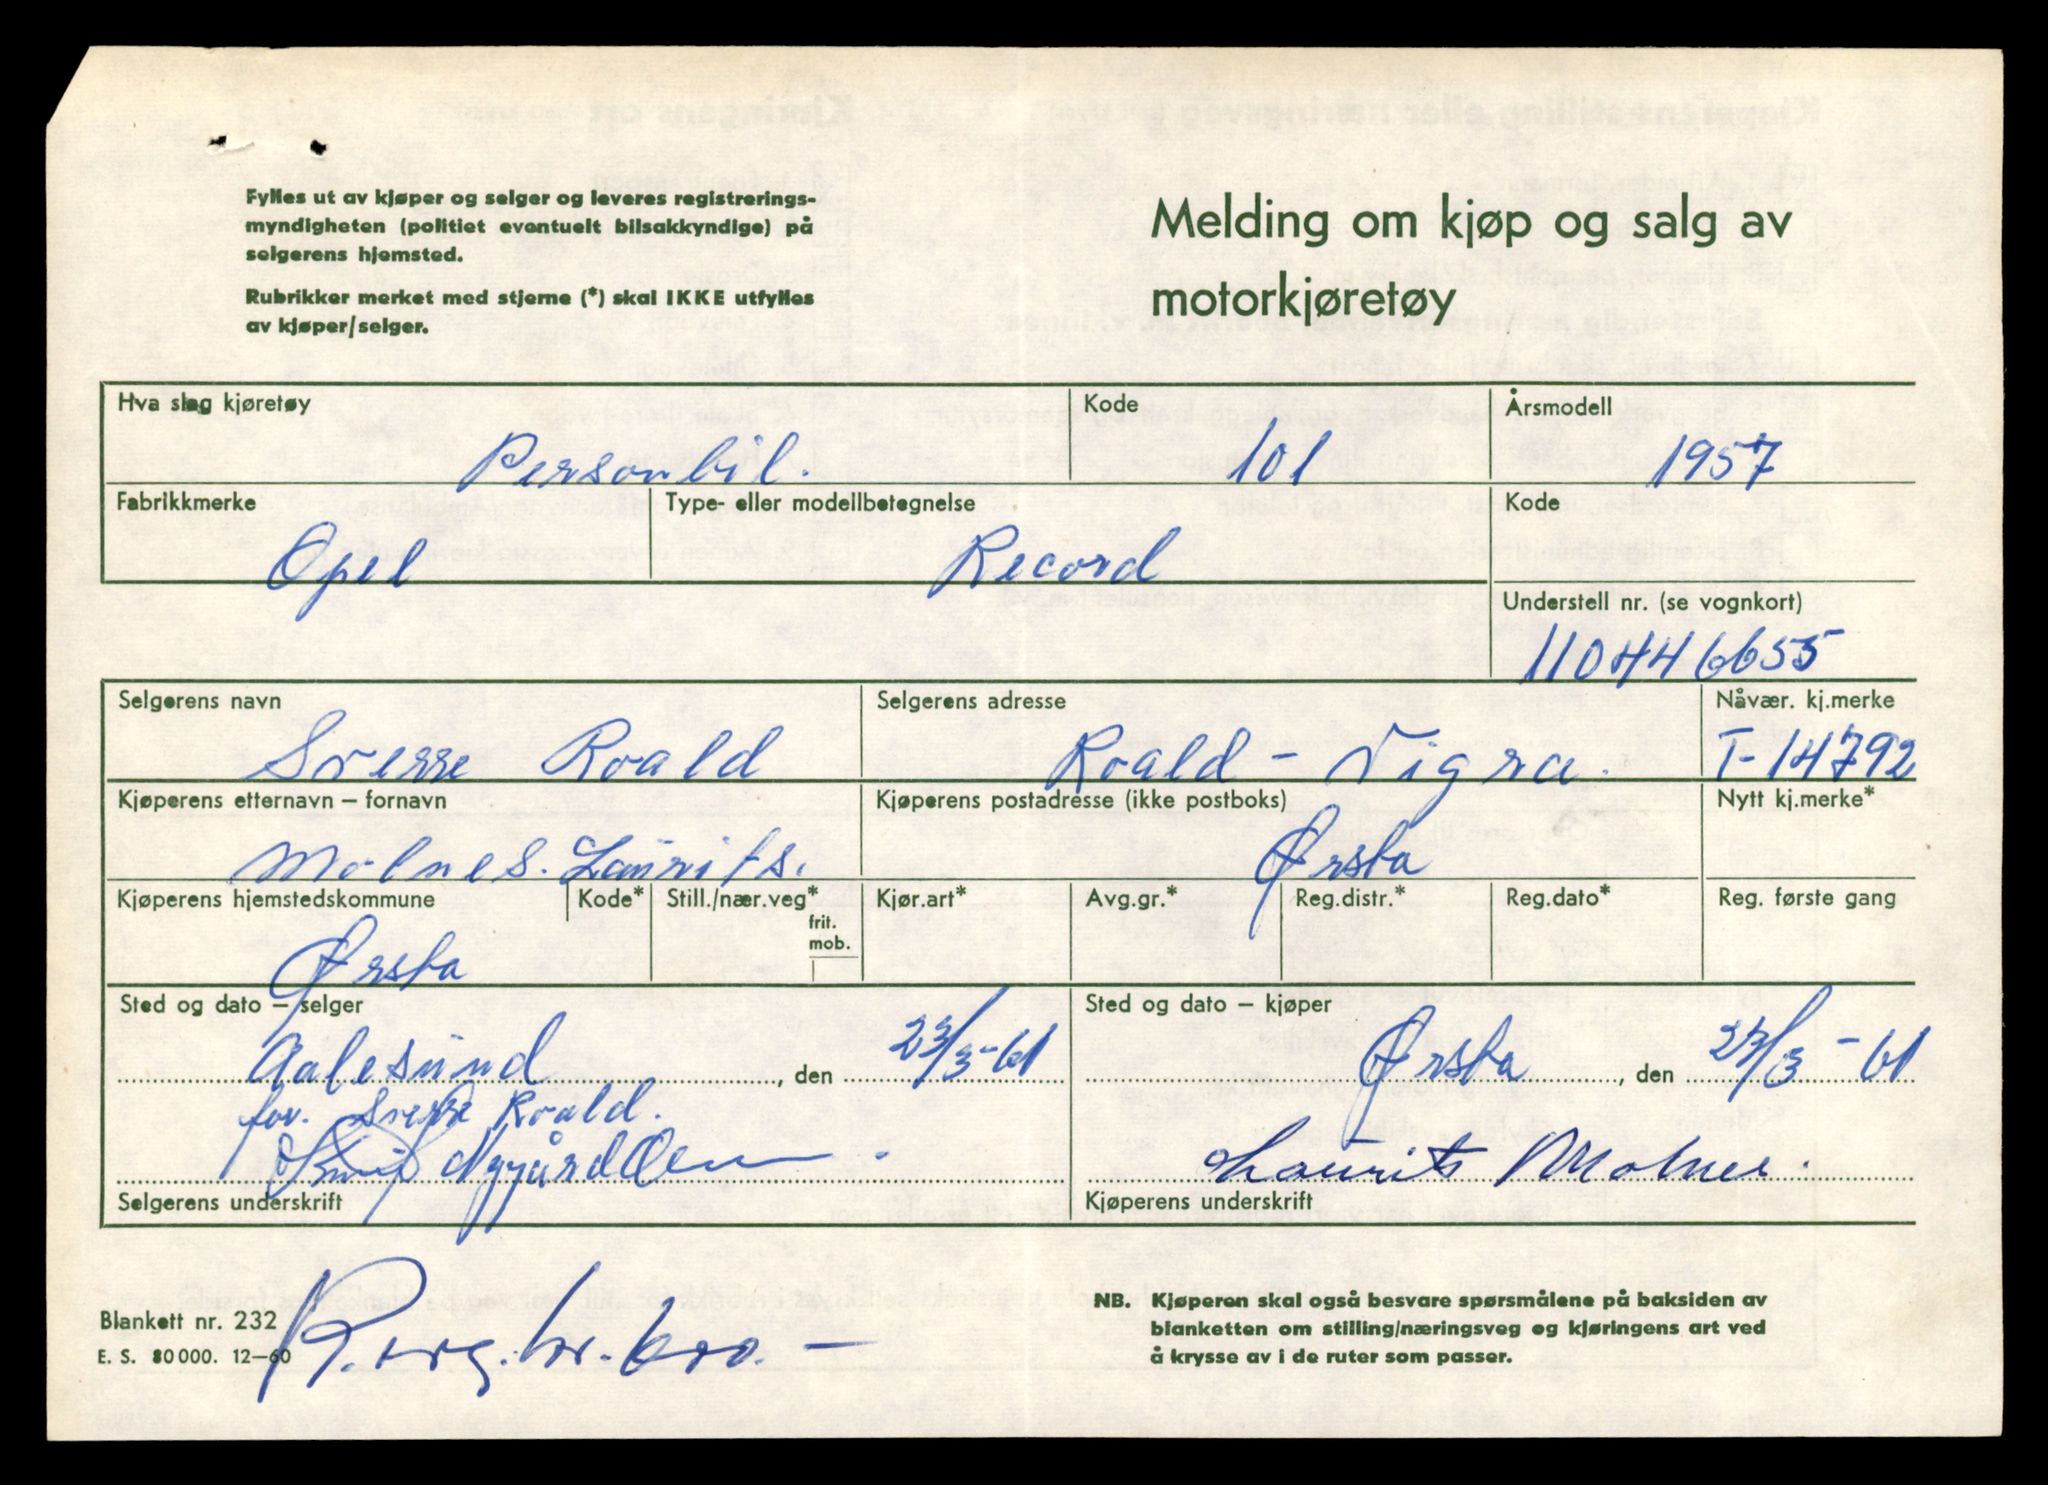 Fylles ut av kjøper og selger og leveres registrerings-
myndigheten (politiet eventuelt bilsakkyndige) på
selgerens hjemsted.
Rubrikker merket med stjerne (*) skal IKKE utfylles
av kjøper/selger.
Melding om kjøp og salg av
motorkjøretøy
Hva slag kjøretøy Kode Årsmodell
Personbil. 101 1957
Fabrikkmerke Type- eller modellbetegnelse Kode
Opel Record
Understell nr. (se vognkort)
110446655
Selgerens navn Selgerens adresse Nåvær. kj.merke
Sverre Roald Roald - Vigra. T-14792
Kjøperens etternavn – fornavn Kjøperens postadresse (ikke postboks) Nytt kj.merke*
Molnes. Laurits. Ørsta
Kjøperens hjemstedskommune Kode* Still./nær.veg* Kjør.art* Avg.gr.* Reg.distr.* Reg.dato* Reg. første gang
frit.
mob.
Ørsta
Sted og dato – selger Sted og dato – kjøper
Aalesund, den 23/3-61 Ørsta, den 23/3-61
for. Sverre Roald.
Laurits Molnes.
Selgerens underskrift Kjøperens underskrift
Blankett nr. 232
E. S. 80 000. 12–60
NB. Kjøperen skal også besvare spørsmålene på baksiden av
blanketten om stilling/næringsveg og kjøringens art ved
å krysse av i de ruter som passer.